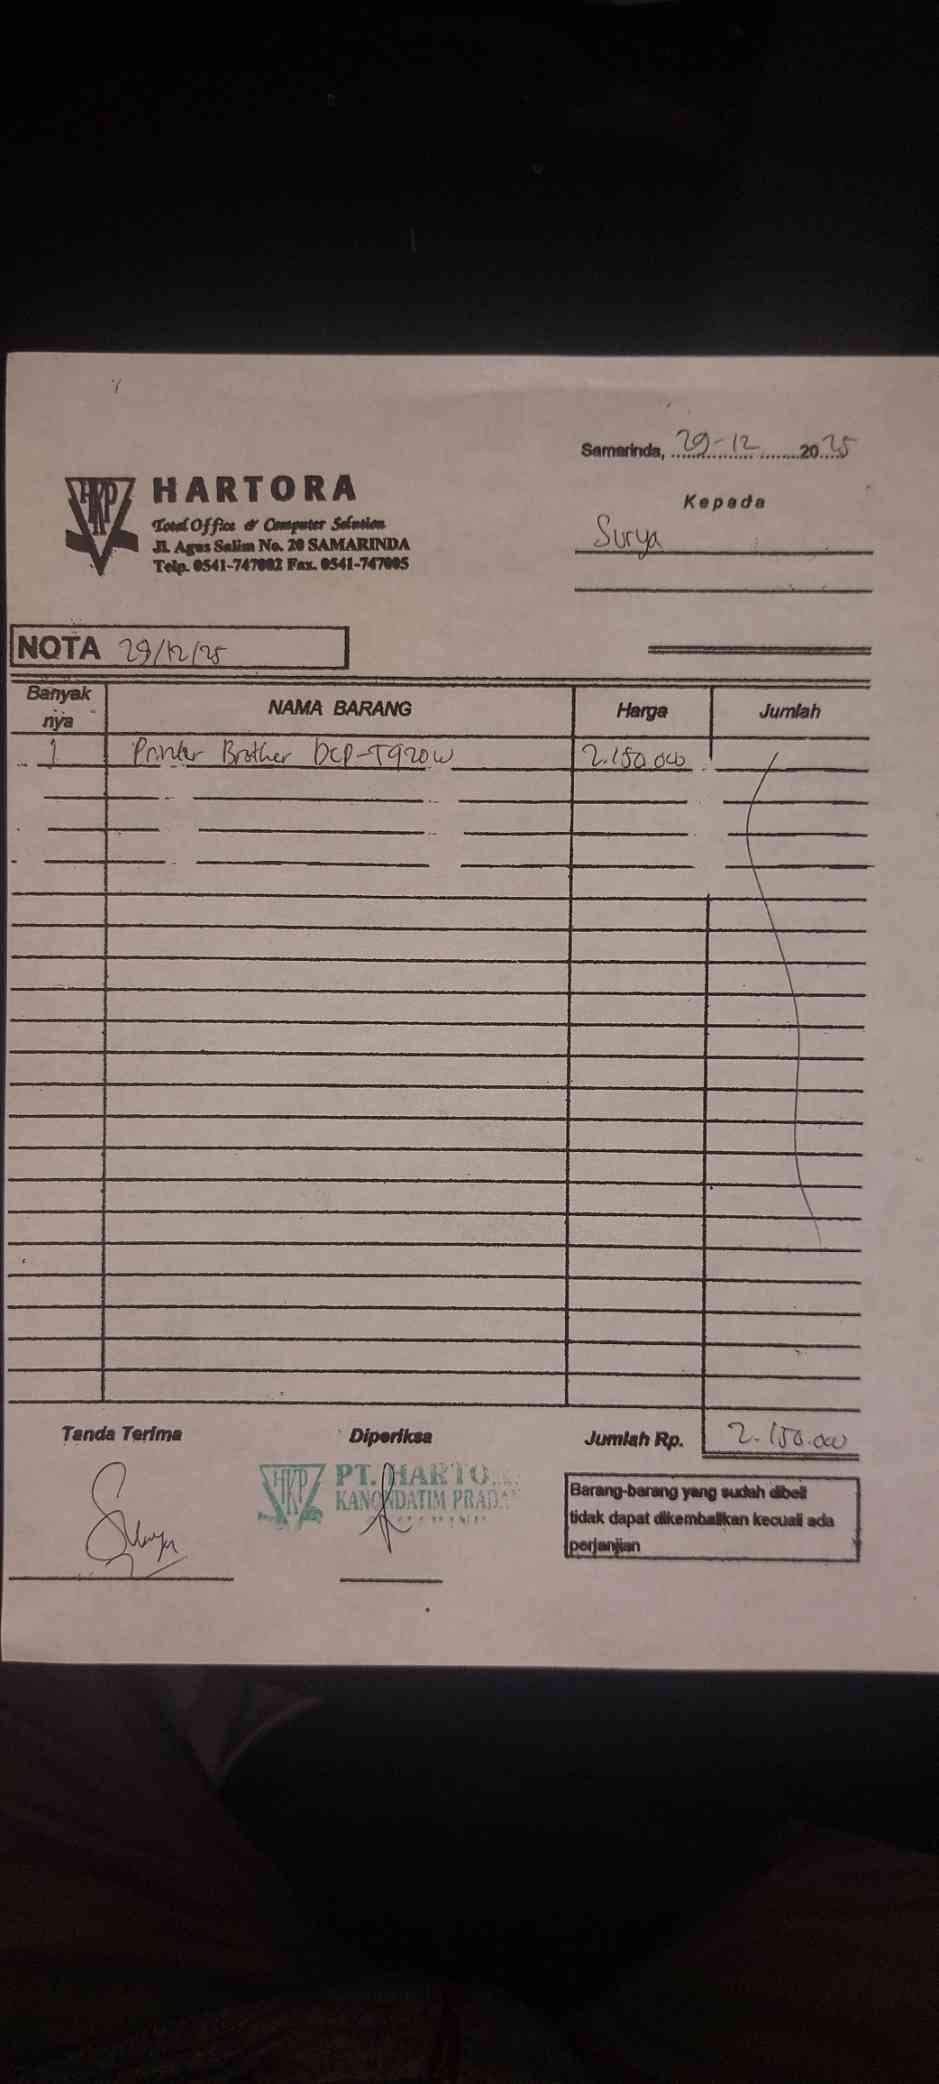 Samarinda, 29-12 2025
HKP
HARTORA
Total Office & Computer Solution
Jl. Agus Salim No. 20 SAMARINDA
Telp. 0541-747002 Fax. 0541-747005
Kepada
Surya
NOTA 29/12/25
Banyak nya NAMA BARANG Harga Jumlah
1 Printer Brother DCP-T920W 2.150.000
Tanda Terima Diperiksa Jumlah Rp. 2.150.000
Surya
HKP PT. HARTO
KANONDATIM PRADA
Barang-barang yang sudah dibeli
tidak dapat dikembalikan kecuali ada
perjanjian